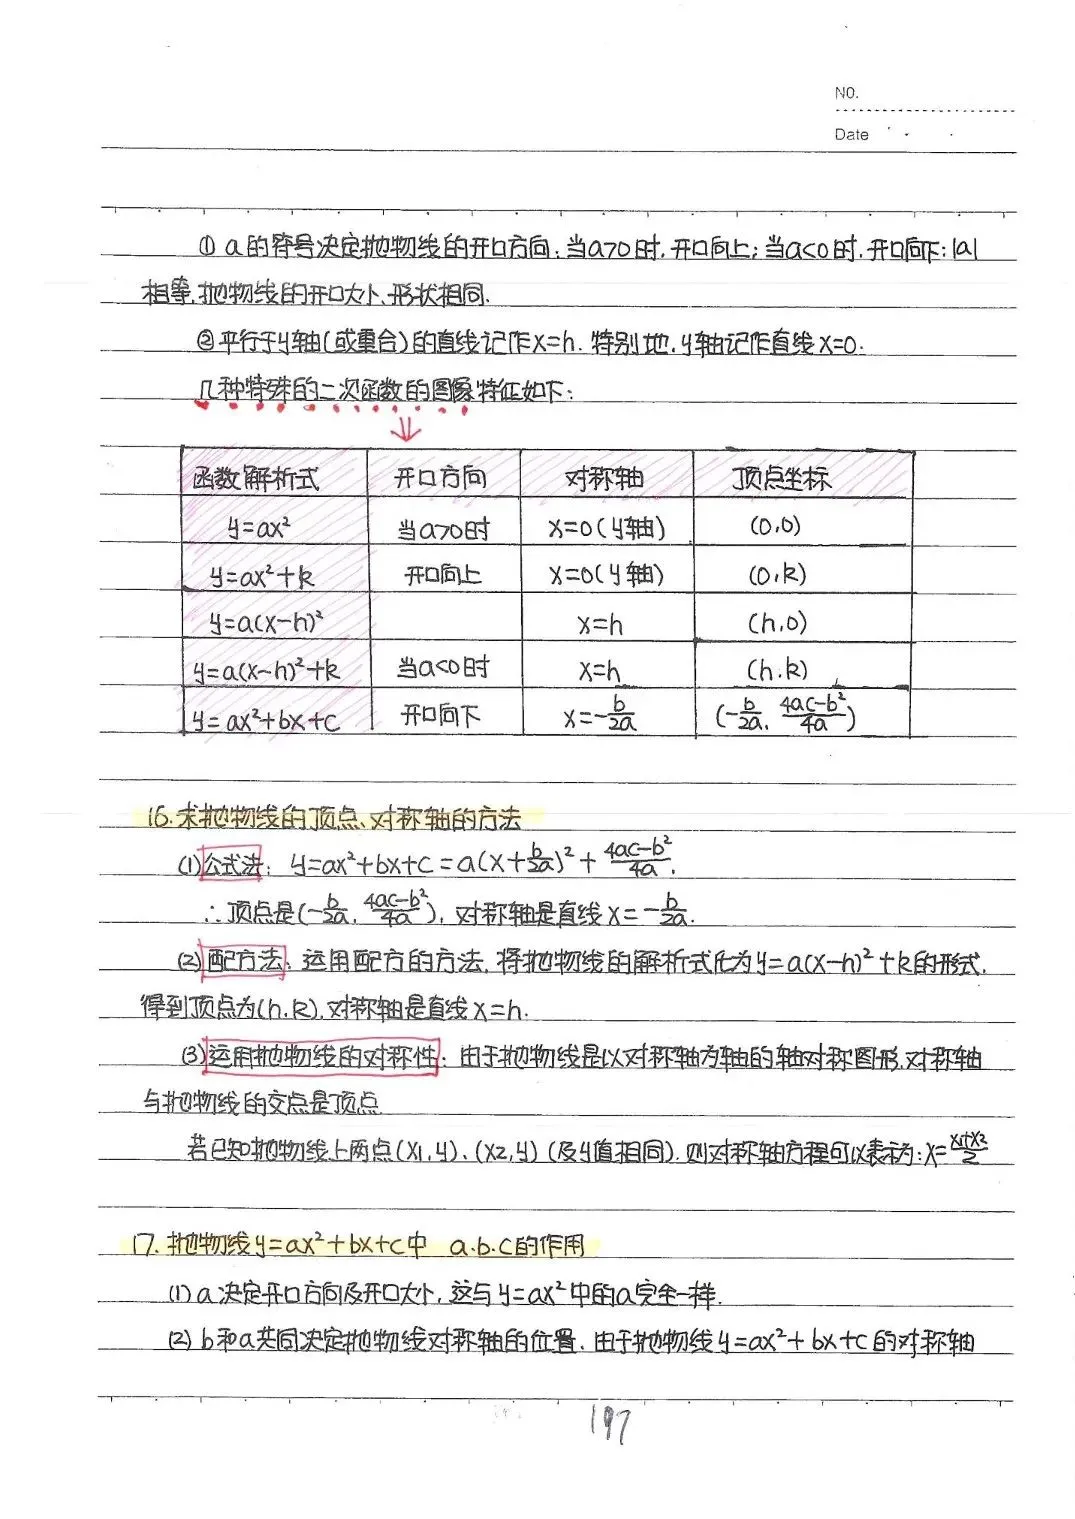 NO.
Date
① a的符号决定抛物线的开口方向:当a>0时,开口向上;当a<0时,开口向下;|a|
相等,抛物线的开口大小、形状相同.
②平行于y轴(或重合)的直线记作x=h.特别地,y轴记作直线x=0.
几种特殊的二次函数的图像特征如下:
函数解析式 开口方向 对称轴 顶点坐标
y=ax² 当a>0时 x=0(y轴) (0,0)
y=ax²+k 开口向上 x=0(y轴) (0,k)
y=a(x-h)² x=h (h,0)
y=a(x-h)²+k 当a<0时 x=h (h,k)
y=ax²+bx+c 开口向下 x=-b/2a (-b/2a, 4ac-b²/4a)
16.求抛物线的顶点、对称轴的方法
(1)公式法: y=ax²+bx+c=a(x+b/2a)²+4ac-b²/4a.
∴顶点是(-b/2a, 4ac-b²/4a),对称轴是直线x=-b/2a.
(2)配方法:运用配方的方法,将抛物线的解析式化为y=a(x-h)²+k的形式,
得到顶点为(h,k),对称轴是直线x=h.
(3)运用抛物线的对称性:由于抛物线是以对称轴为轴的轴对称图形,对称轴
与抛物线的交点是顶点
若已知抛物线上两点(x₁,y)、(x₂,y)(及y值相同),则对称轴方程可以表示为:x=x₁+x₂/2
17.抛物线y=ax²+bx+c中 a.b.c的作用
(1)a决定开口方向及开口大小,这与y=ax²中的a完全一样.
(2)b和a共同决定抛物线对称轴的位置.由于抛物线y=ax²+bx+c的对称轴
197